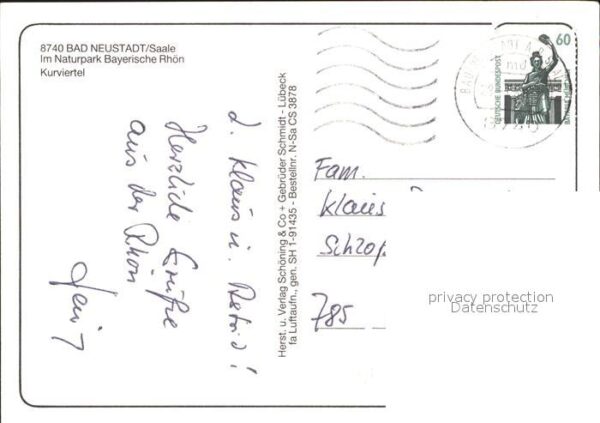 8740 BAD NEUSTADT/Saale
Im Naturpark Bayerische Rhön
Kurviertel
L. Klaus u. Astrid!
Herzliche Grüße
aus der Rhön
Herst. u. Verlag Schöning & Co + Gebrüder Schmidt - Lübeck
fa Luftaufn., gen. SH 1-91435 - Bestellnr. N-Sa CS 3878
60
DEUTSCHE BUNDESPOST
BAVARIA MÜNCHEN
Fam.
Klaus
785
privacy protection
Datenschutz